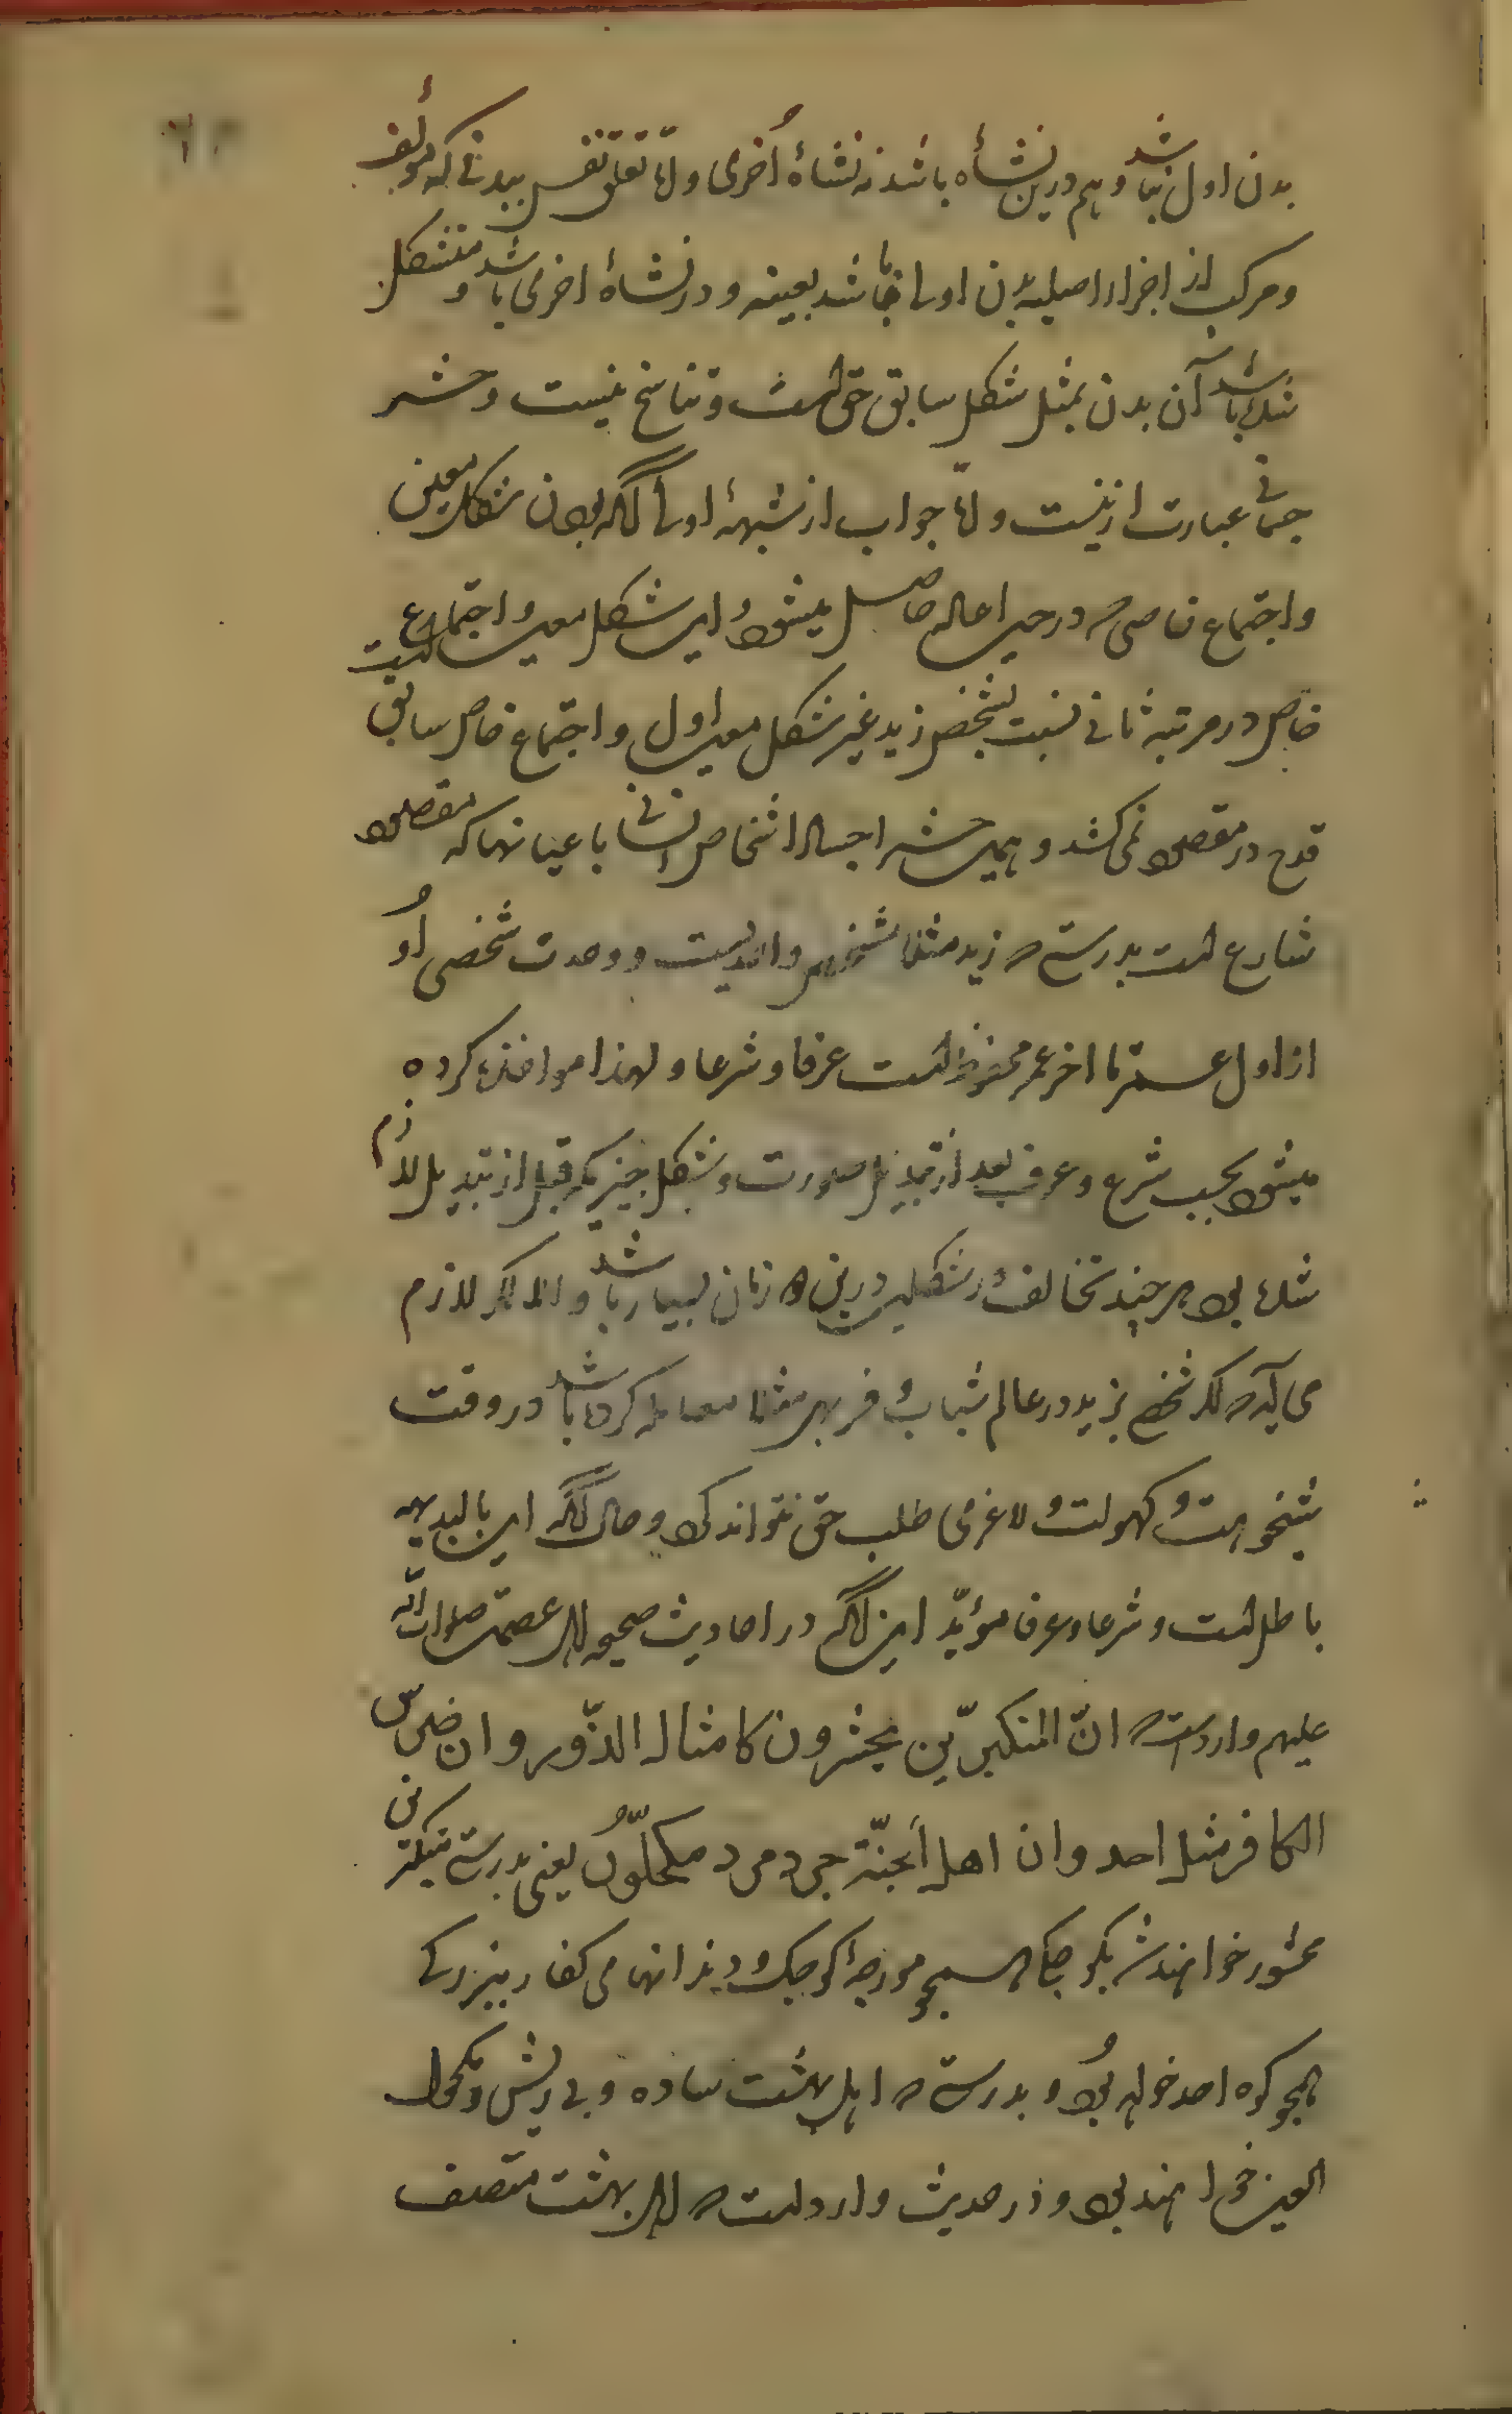 بدن اول نباشد و هم درین نشأه باشد نه نشأهٔ اُخری و امّا تعلّق نفس ببدنی که مؤلف
و مرکب از اجزاء اصلیه بدن اول باشد بعینه و در نشأهٔ اخری باشد و متشکل
شده باشد آن بدن بمثل شکل سابق حق است و تناسخ نیست و حشر
جسمانی عبارت ازینست و امّا جواب از شبههٔ اولی آنکه بودن شکل معین
و اجتماع خاصی که در حین اعاده حاصل میشود و این شکل معین و اجتماع
خاص در مرتبه ثانی نسبت بشخص زید غیر شکل معین اول و اجتماع خاص سابق است
قدح در مقصود نمی‌کند و همین حشر اجساد اشخاص انسانی باعیانها که مقصود
شارع است بدرستی که زید مثلا شخص واحدیست و وحدت شخصی اُو
از اول عمر تا اخر عمر محفوظ است عرفا و شرعا و لهذا مواخذه کرده
میشود بحسب شرع و عرف بعد از تبدیل صورت و شکل بچیزیکه قبل از تبدیل لازم
شده بود هرچند تخالف در شکلین درین دو زمان بسیار باشد و الا لازم
می‌آید که اگر شخصی بزید در عالم شباب و فربهی مثلا معامله کرده باشد در وقت
شیخوخت و کهولت و لاغری طلب حق نتواند کرد و حال آنکه این بالبدیهه
باطل است و شرعا و عرفا مؤیّد این آنکه در احادیث صحیحه اهل عصمت صلوات الله
علیهم وارد است که انّ المتکبّرین یحشرون کامثال الذّر و ان ضرس
الکافر مثل احد و ان اهل الجنّة جرد مرد مکحّلوُن یعنی بدرستی متکبرین
محشور خواهند شد بکوچکی همچو مورچهٔ کوچک و دندانهای کفار ببزرگی
همچو کوه احد خواهد بُود و بدرستی که اهل بهشت ساده و بی ریش و مکحول
العین خواهند بود و در حدیث وارد است که اهل بهشت متصف